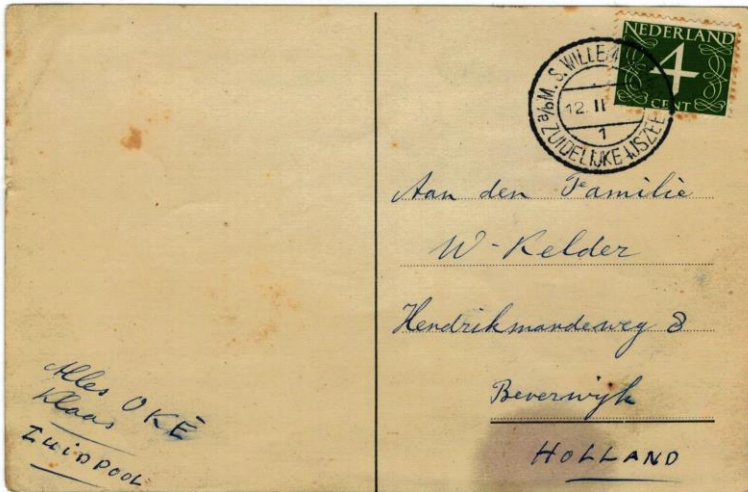 NEDERLAND
4
CENT
M.S. WILLEM
12. II
1
a/b ZUIDELIJKE IJSZEE
Aan den Familie
W-Kelder
Hendrikmandeweg 8
Beverwijk
HOLLAND
Alles OKÉ
Klaas
ZUIDPOOL